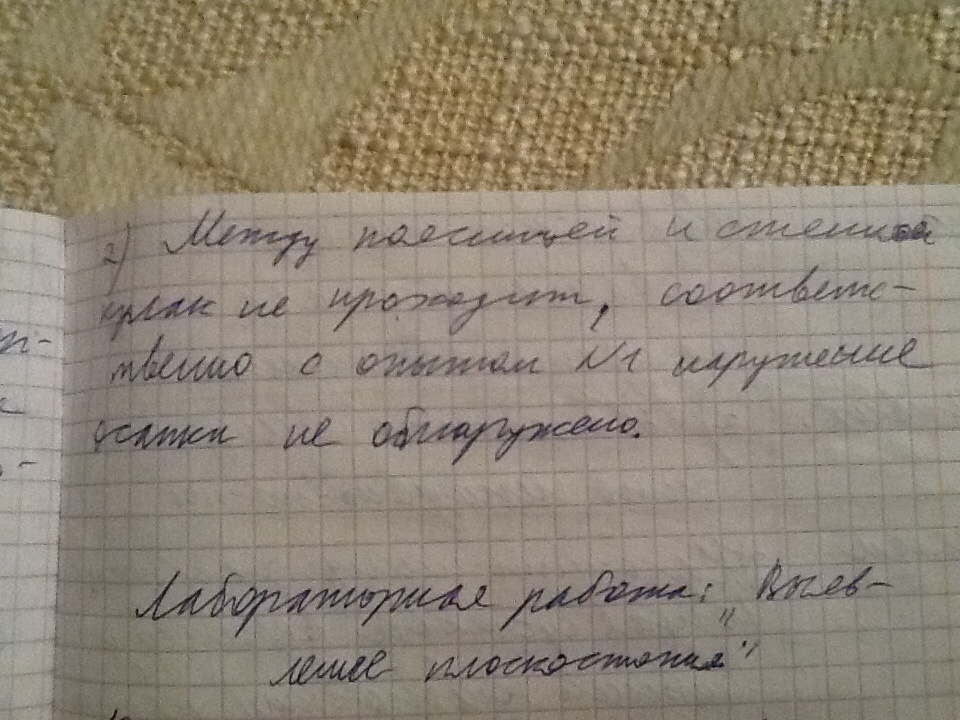 2) Между поясницей и стенкой
кулак не проходит, соответс-
твенно с опытом №1 нарушение
осанки не обнаружено.
Лабораторная работа: "Выяв-
ление плоскостопия"